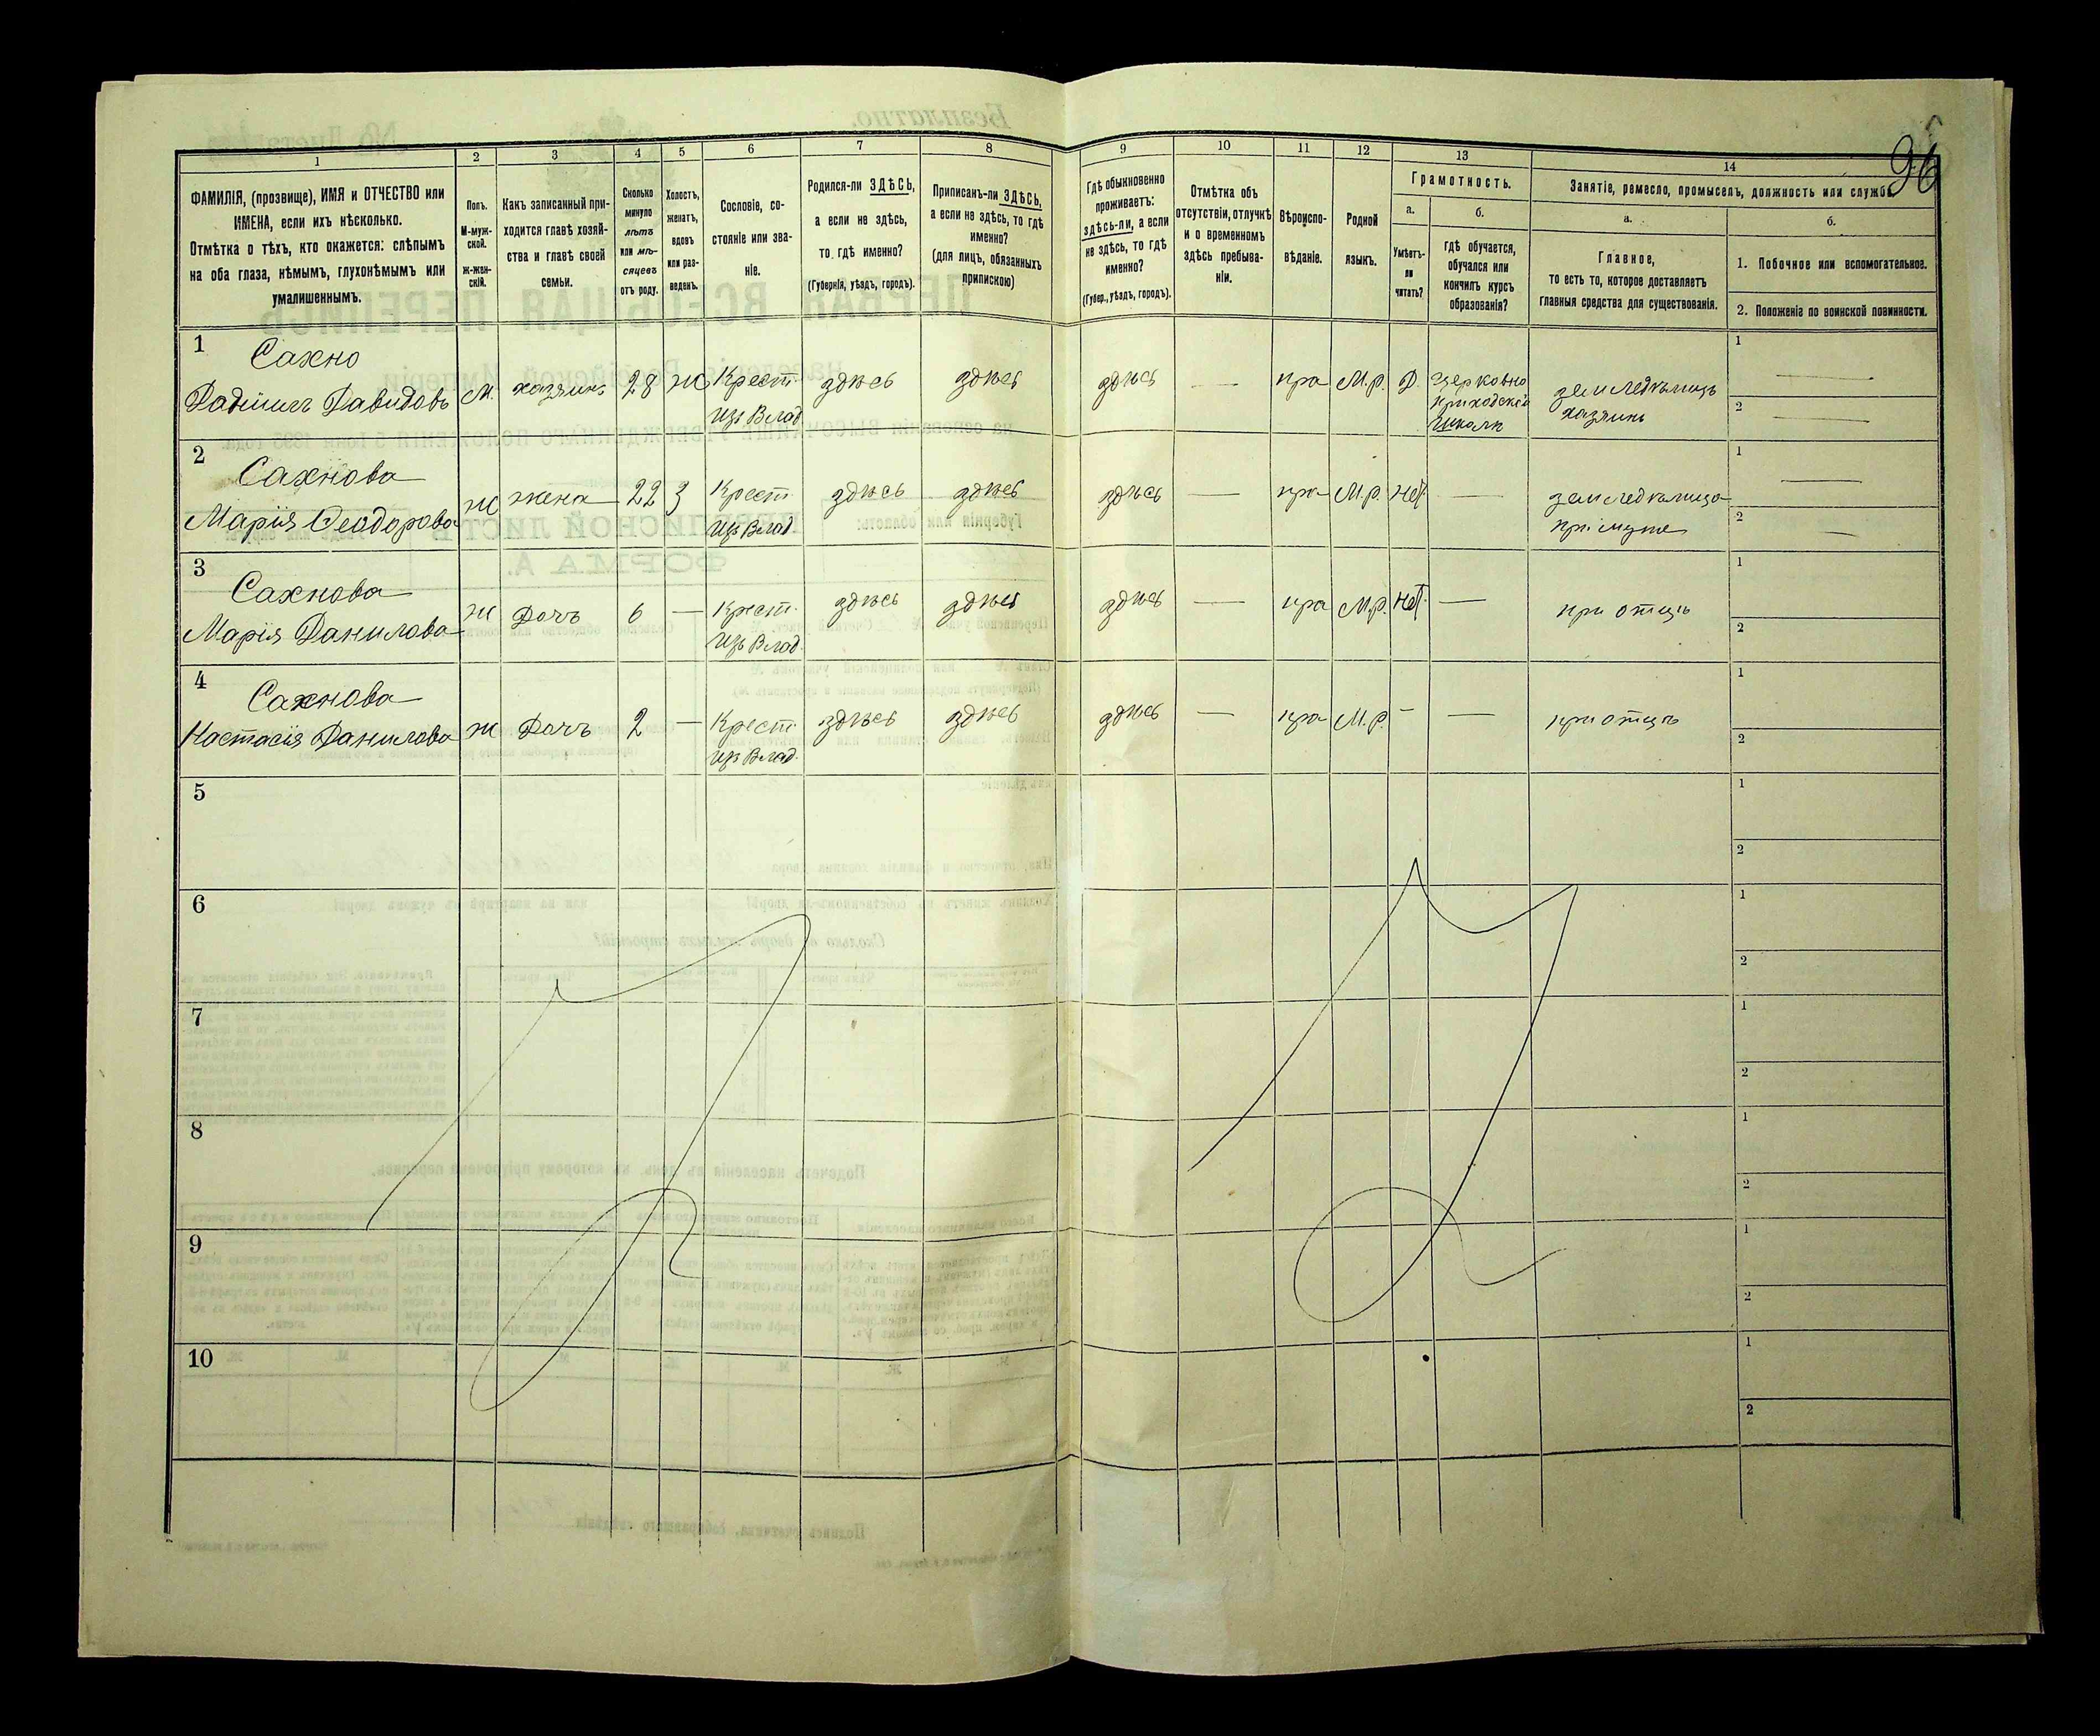 96
1 2 3 4 5 6 7 8 9 10 11 12 13 14
ФАМИЛІЯ, (прозвище), ИМЯ и ОТЧЕСТВО или
ИМЕНА, если ихъ нѣсколько.
Отмѣтка о тѣхъ, кто окажется: слѣпымъ
на оба глаза, нѣмымъ, глухонѣмымъ или
умалишеннымъ.
Полъ.
М-муж-
ской.
Ж-жен-
скій.
Какъ записанный при-
ходится главѣ хозяй-
ства и главѣ своей
семьи.
Сколько
минуло
лѣтъ
или мѣ-
сяцевъ
отъ роду.
Холостъ,
женатъ,
вдовъ
или раз-
веденъ.
Сословіе, со-
стояніе или зва-
ніе.
Родился-ли ЗДѢСЬ,
а если не здѣсь,
то гдѣ именно?
(Губернія, уѣздъ, городъ).
Приписанъ-ли ЗДѢСЬ,
а если не здѣсь, то гдѣ
именно?
(для лицъ, обязанныхъ
припискою)
Гдѣ обыкновенно
проживаетъ:
здѣсь-ли, а если
не здѣсь, то гдѣ
именно?
(Губер., уѣздъ, городъ).
Отмѣтка объ
отсутствіи, отлучкѣ
и о временномъ
здѣсь пребыва-
ніи.
Вѣроиспо-
вѣданіе.
Родной
языкъ.
Грамотность.
а.
Умѣетъ-
ли
читать?
б.
Гдѣ обучается,
обучался или
кончилъ курсъ
образованія?
Занятіе, ремесло, промыселъ, должность или служба.
а.
Главное,
то есть то, которое доставляетъ
главныя средства для существованія.
б.
1. Побочное или вспомогательное.
2. Положеніе по воинской повинности.
1 Сахно
Даніилъ Давидовъ М. хозяинъ 28 Ж Крест. изъ Влад. здѣсь здѣсь здѣсь — пра М.р. Д. церковно
приходской
школѣ
земледѣлецъ
хозяинъ
1 —
2 —
2 Сахнова
Марія Ѳеодорова Ж жена 22 З Крест. изъ Влад. здѣсь здѣсь здѣсь — пра М.р. Нет —
земледѣлица
при мужѣ
1 —
2 —
3 Сахнова
Марія Данилова Ж Дочь 6 — Крест. изъ Влад. здѣсь здѣсь здѣсь — пра М.р. Нет. — при отцѣ
1
2
4 Сахнова
Настасія Данилова Ж Дочь 2 — Крест. изъ Влад. здѣсь здѣсь здѣсь — пра М.р. — — при отцѣ
1
2
5
1
2
6
1
2
7
1
2
8
1
2
9
1
2
10
1
2